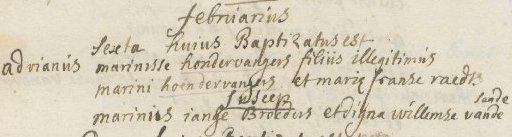 februarius
sexta huius Baptizatus est
adrianus marinisse hondervangers filius illegitimus
marini hoendervangers et marie franse raedts
suscep
marinius janse Broedus et digna willemse vande
sande